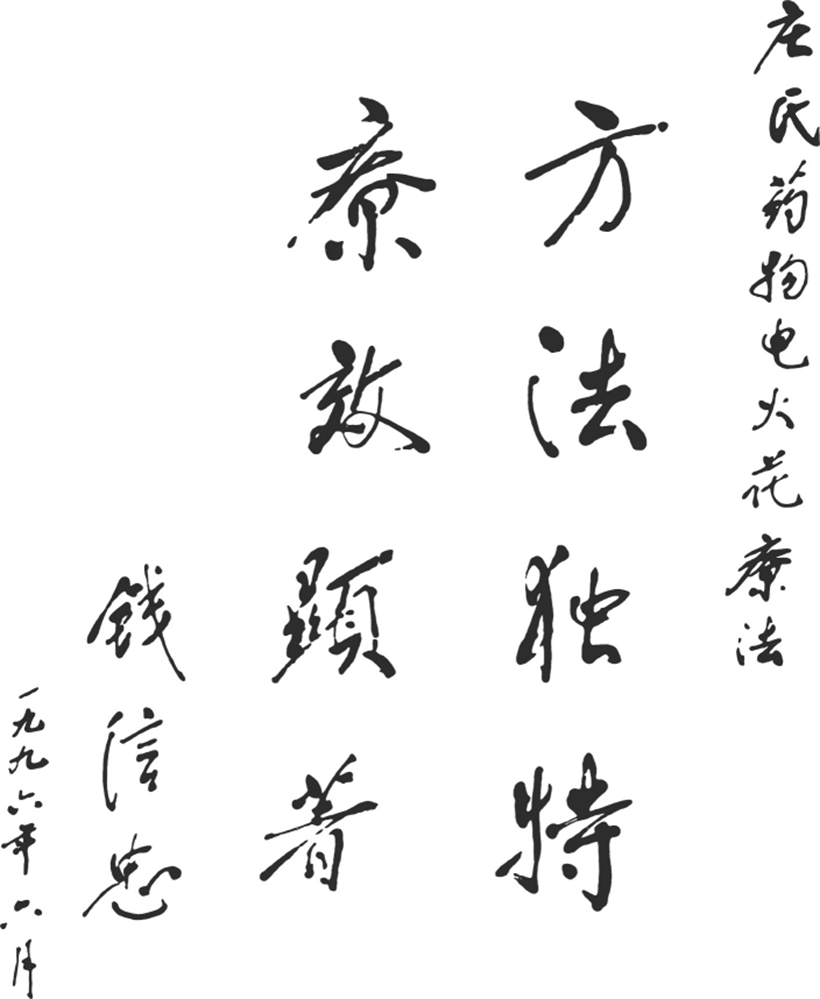 庄氏药物电火花療法
方法独特
療效顯著
钱信忠
一九九六年六月